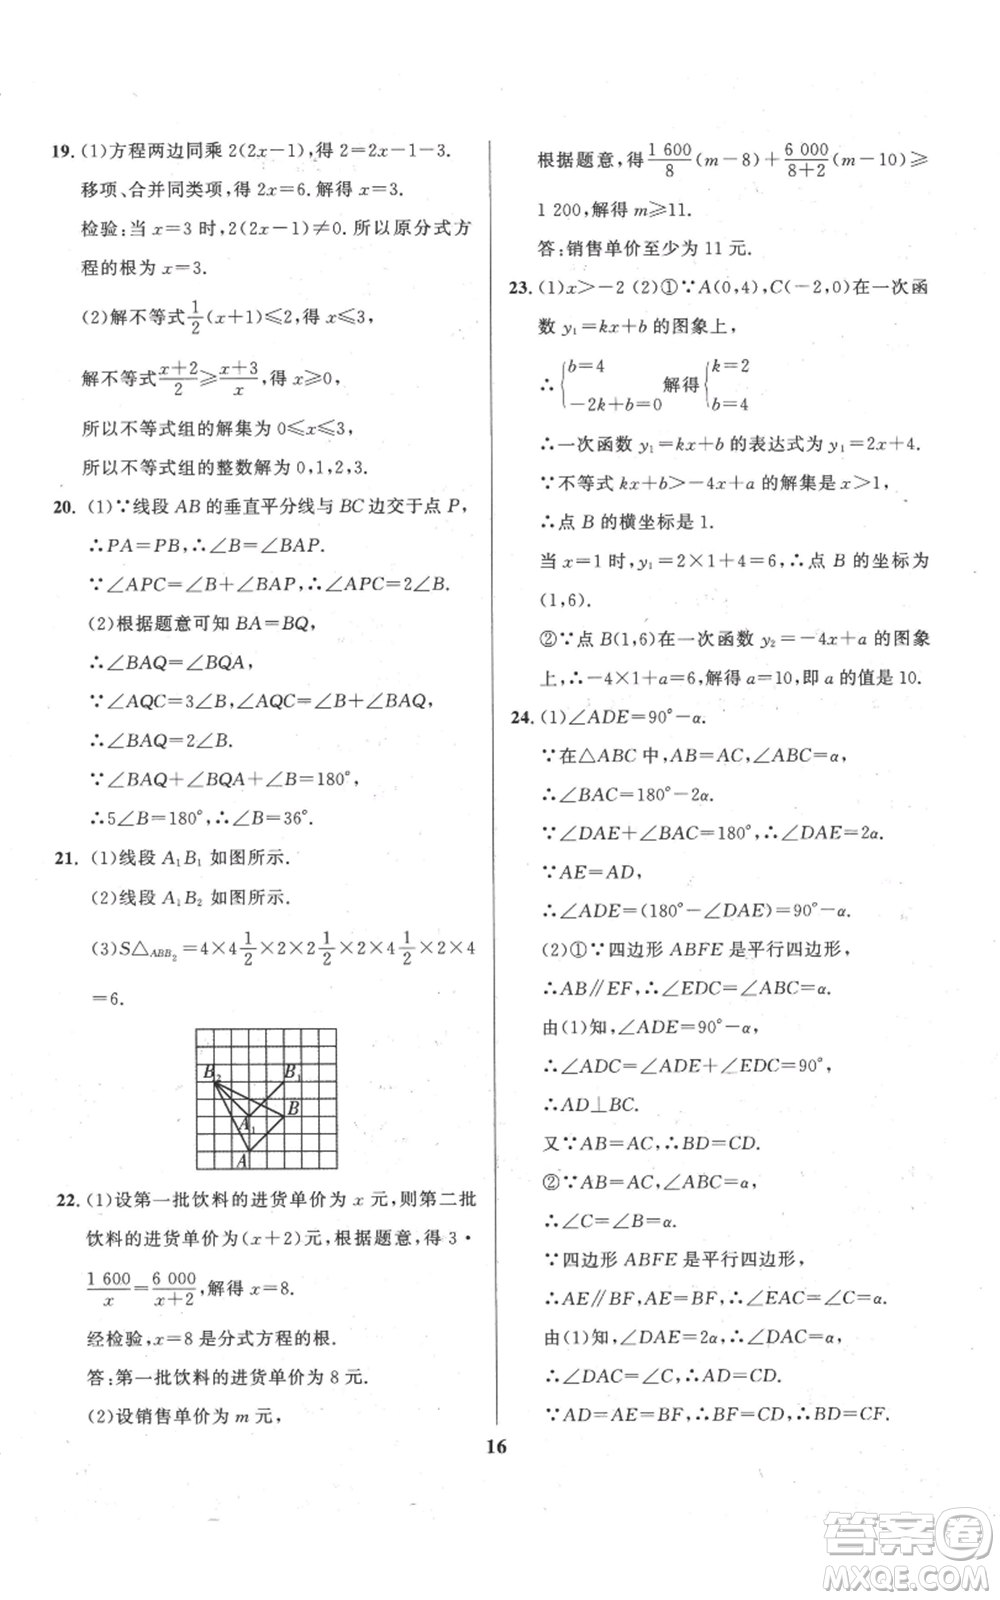 19. (1)方程两边同乘 2(2x－1)，得 2＝2x－1－3.
移项、合并同类项，得 2x＝6. 解得 x＝3.
检验：当 x＝3 时，2(2x－1)≠0. 所以原分式方
程的根为 x＝3.
(2)解不等式 1/2 (x＋1)≤2，得 x≤3，
解不等式 (x＋2)/2 ≥ (x＋3)/x，得 x≥0，
所以不等式组的解集为 0≤x≤3，
所以不等式组的整数解为 0,1,2,3.
20. (1)∵线段 AB 的垂直平分线与 BC 边交于点 P，
∴PA＝PB，∴∠B＝∠BAP.
∵∠APC＝∠B＋∠BAP，∴∠APC＝2∠B.
(2)根据题意可知 BA＝BQ，
∴∠BAQ＝∠BQA，
∵∠AQC＝3∠B，∠AQC＝∠B＋∠BAQ，
∴∠BAQ＝2∠B.
∵∠BAQ＋∠BQA＋∠B＝180°，
∴5∠B＝180°，∴∠B＝36°.
21. (1)线段 A₁B₁ 如图所示.
(2)线段 A₁B₂ 如图所示.
(3)S△ABB₂＝4×4 1/2 ×2×2 1/2 ×2×2 1/2 ×2×4
＝6.
B₂ B₁
A₁ B
A
22. (1)设第一批饮料的进货单价为 x 元，则第二批
饮料的进货单价为(x＋2)元，根据题意，得 3·
1 600/x ＝ 6 000/(x＋2)，解得 x＝8.
经检验，x＝8 是分式方程的根.
答：第一批饮料的进货单价为 8 元.
(2)设销售单价为 m 元，
根据题意，得 1 600/8 (m－8)＋ 6 000/(8＋2) (m－10)≥
1 200，解得 m≥11.
答：销售单价至少为 11 元.
23. (1)x＞－2 (2)①∵A(0,4)，C(－2,0)在一次函
数 y₁＝kx＋b 的图象上，
∴{b＝4 －2k＋b＝0 解得 {k＝2 b＝4
∴一次函数 y₁＝kx＋b 的表达式为 y₁＝2x＋4.
∵不等式 kx＋b＞－4x＋a 的解集是 x＞1，
∴点 B 的横坐标是 1.
当 x＝1 时，y₁＝2×1＋4＝6，∴点 B 的坐标为
(1,6).
②∵点 B(1,6)在一次函数 y₂＝－4x＋a 的图象
上，∴－4×1＋a＝6，解得 a＝10，即 a 的值是 10.
24. (1)∠ADE＝90°－α.
∵在△ABC 中，AB＝AC，∠ABC＝α，
∴∠BAC＝180°－2α.
∵∠DAE＋∠BAC＝180°，∴∠DAE＝2α.
∵AE＝AD，
∴∠ADE＝(180°－∠DAE)＝90°－α.
(2)①∵四边形 ABFE 是平行四边形，
∴AB∥EF，∴∠EDC＝∠ABC＝α.
由(1)知，∠ADE＝90°－α，
∴∠ADC＝∠ADE＋∠EDC＝90°，
∴AD⊥BC.
又∵AB＝AC，∴BD＝CD.
②∵AB＝AC，∠ABC＝α，
∴∠C＝∠B＝α.
∵四边形 ABFE 是平行四边形，
∴AE∥BF，AE＝BF，∴∠EAC＝∠C＝α.
由(1)知，∠DAE＝2α，∴∠DAC＝α，
∴∠DAC＝∠C，∴AD＝CD.
∵AD＝AE＝BF，∴BF＝CD，∴BD＝CF.
16
答案卷
MXQE.COM